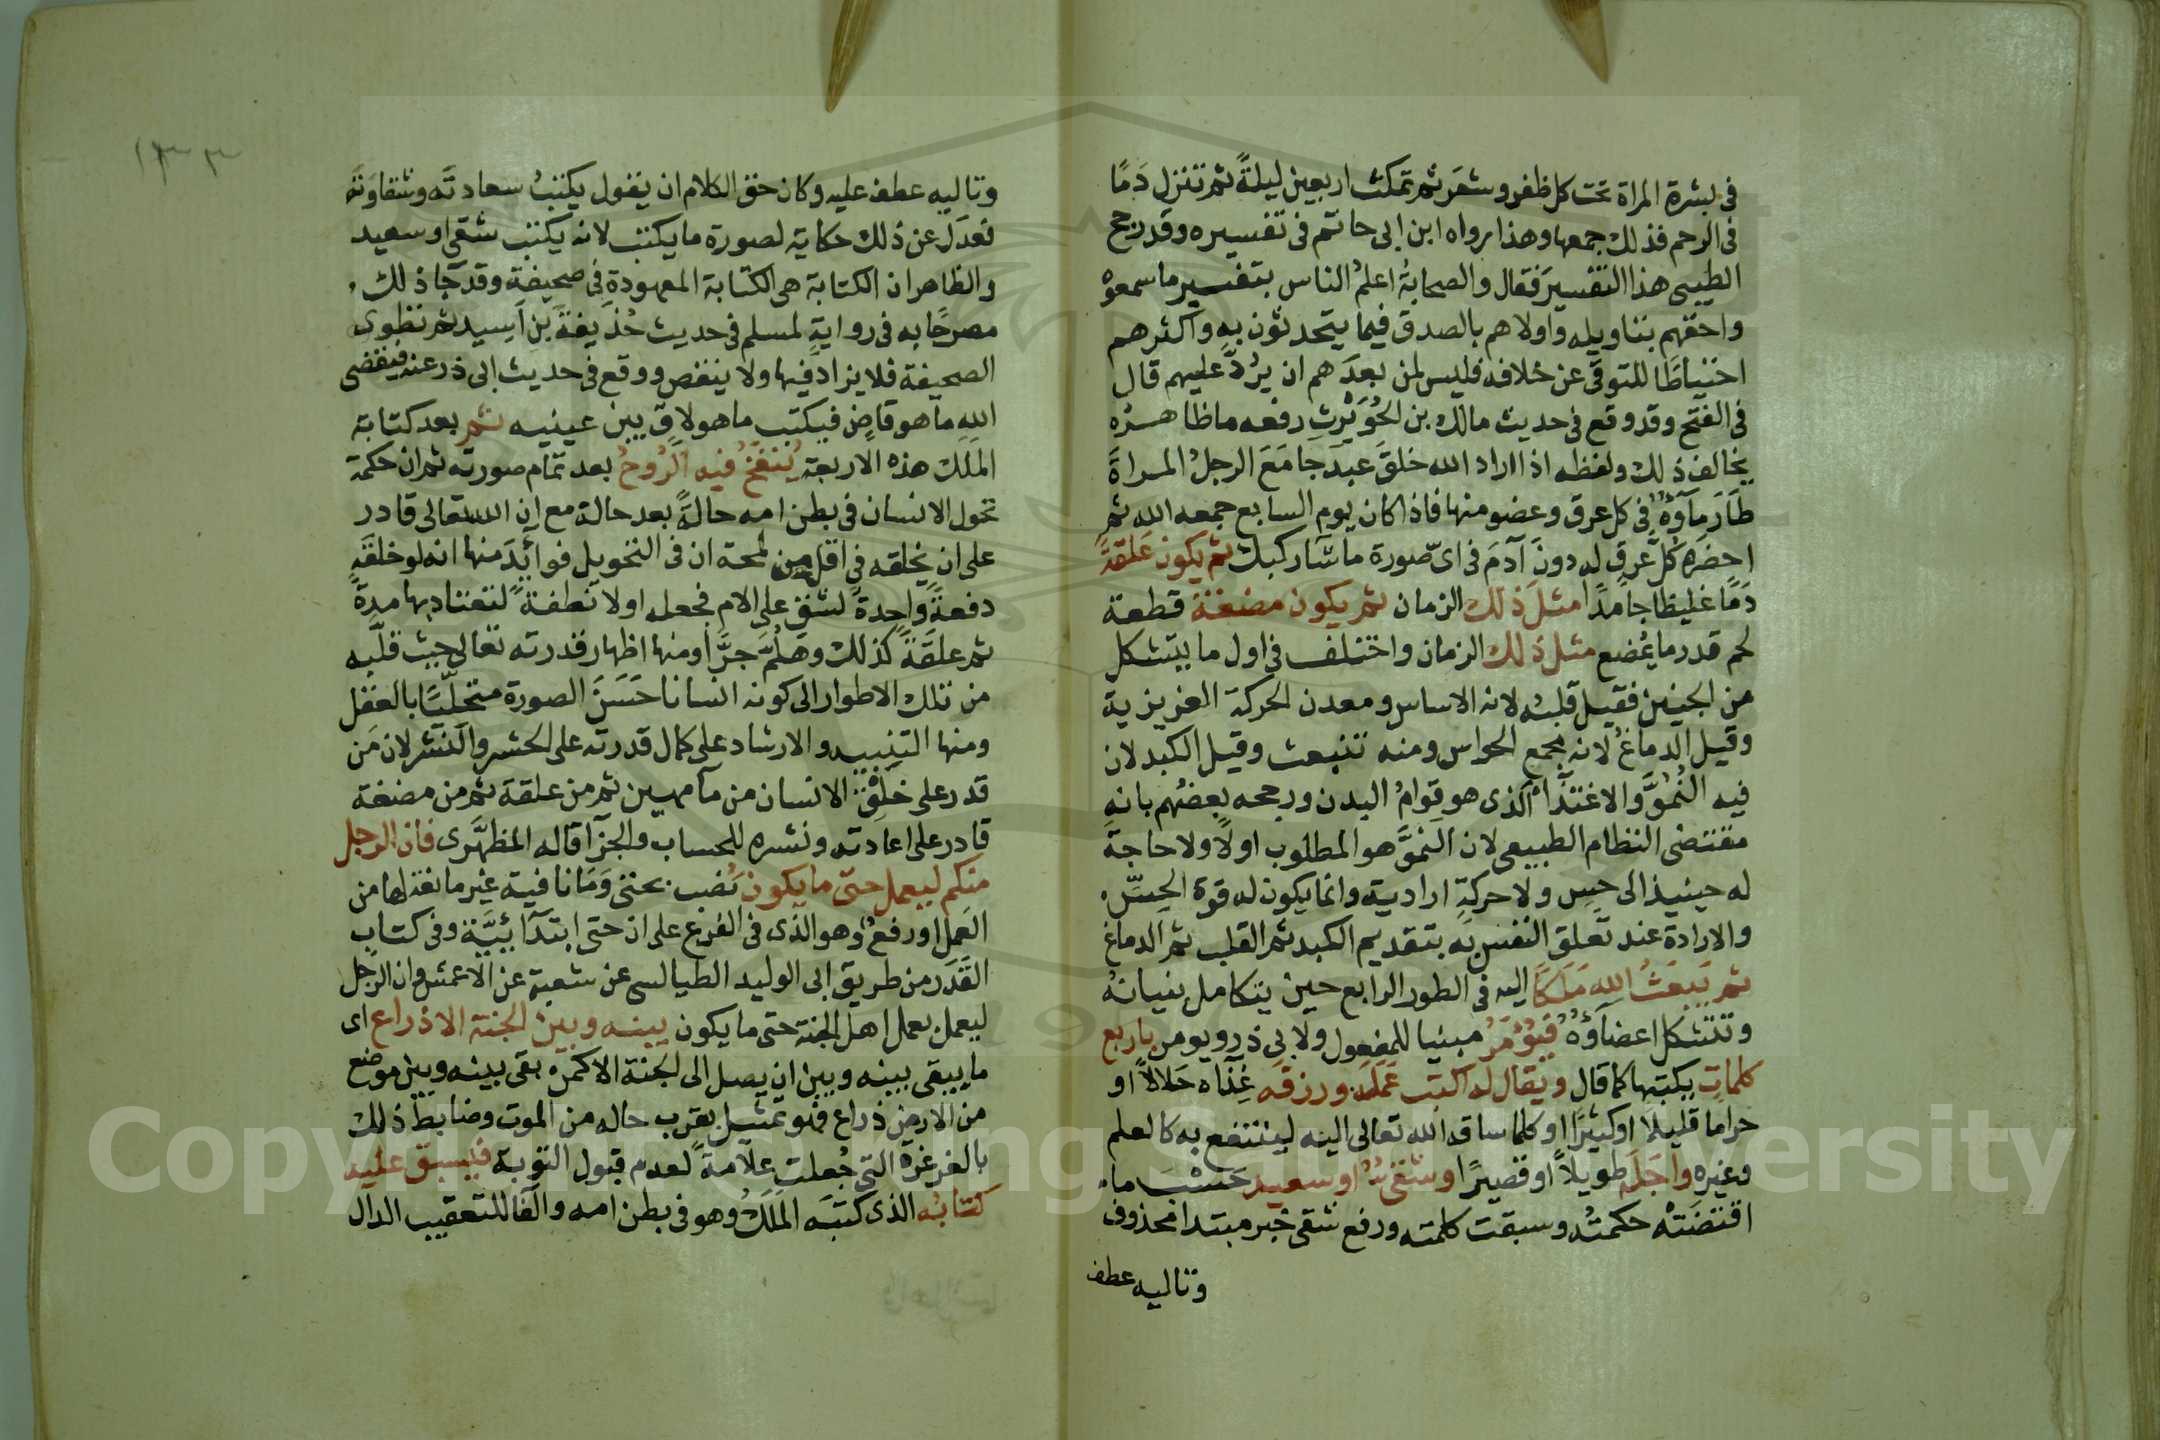 في بشرة المراة تحت كل ظفر وشعر ثم تمكث اربعين ليلةً ثم تنزل دَمًا
في الرحم فذلك جمعها وهذا رواه ابن ابي حاتم في تفسيره وقد رجح
الطيبي هذا التفسيرَ فقال والصحابةُ اعلمُ الناس بتفسير ما سمعوْه
واحقهم بتاويله واولاهم بالصدق فيما يتحدثون به واكثرهم
احتياطًا للتوقي عن خلافه فليس لمن بعدَهم ان يرُدَّ عليهم قال
في الفتح وقد وقع في حديث مالك بن الحُوَيْرِث رفعه ما ظاهره
يخالف ذلك ولفظه اذا اراد الله خلقَ عبدٍ جَامَعَ الرجلُ المراةَ
طَارَ مَآؤهُ في كل عرق وعضو منها فاذا كان يوم السابع جمعه الله ثم
احضره كلُّ عرق له دون آدمَ في ايّ صورة ما شآ ركبك ثم يكون عَلقةً
دَمًا غليظا جامدًا مثلَ ذلك الزمان ثم يكون مضغة قطعة
لحم قدر ما يُمضغ مثل ذلك الزمان واختلف في اول ما يتشكل
من الجنين فقيل قلبُه لانه الاساس ومعدن الحركة الغريزية
وقيل الدماغُ لانه مجمع الحواس ومنه تنبعث وقيل الكبد لان
فيه النُمُوَّ والاغتذآءَ الذي هو قوامُ البدن ورجحه بعضُهم بانه
مقتضى النظام الطبيعي لان النُموَّ هو المطلوب اولًا ولا حاجةَ
له حينيذ الى حسٍ ولا حركةٍ ارادية وانما يكون له قوة الحِسّ
والارادة عند تعلق النفس به بتقديم الكبد ثم القلب ثم الدماغ
ثم يَبعَثُ اللهُ مَلَكًا اليه في الطور الرابع حين يتكامل بنيانهُ
وتتشكل اعضآؤه فيُؤْمَرُ مبنيا للمفعول ولابي ذر ويومر باربع
كلماتٍ يكتبها كما قال ويقال له اكتب عَمَلَه ورزقَه غِذَآه حَلالًا او
حراما قليلًا او كثيرًا او كلما ساقه الله تعالى اليه لينتفع به كالعلم
وغيره واجَلَه طويلًا او قصيرًا وشقيٌّ او سعيد حَسْبَ ما
اقتضَتْه حكمتُه وسبقت كلمته ورفع شقي خبر مبتدا محذوف
وتاليه عطف
١٣٣
وتاليه عطف عليه وكان حق الكلام ان يقول يكتبُ سعادتَه وشقاوتَه
فعدَل عن ذلك حكاية لصورة ما يكتب لانه يكتب شقي او سعيد
والظاهر ان الكتابة هي الكتابة المعهودة في صحيفة وقد جآ ذلك
مصرحًا به في روايةٍ لمسلم في حديث حُذَيفةَ بنِ اَسِيد ثم تطوى
الصحيفة فلا يزاد فيها ولا ينقص ووقع في حديث ابي ذر عنه فيقضي
الله ما هو قاضٍ فيكتب ما هو لاقٍ بين عينيه ثم بعد كتابة
المَلَك هذه الاربعة يُنفَخُ فيه الرُوحُ بعد تمام صورته ثم ان حكمة
تحول الانسان في بطن امه حالةً بعد حالة مع ان الله تعالى قادر
على ان يخلقه في اقل من لمحة ان في التحويل فوايدَ منها انه لو خلقه
دفعةً واحدةً لشق على الام فجعله اولا نطفةً لتعتاد بها مدةً
ثم علقةً كذلك وهَلُمَّ جَرَّا ومنها اظهار قدرته تعالى حيث قلَّبه
من تلك الاطوار الى كونه انسانا حَسَنَ الصورة متحلِّيًا بالعقل
ومنها التنبيه والارشاد على كمال قدرته على الحشر والنشر لان مَن
قدر على خلْقِ الانسان من مآ مهين ثم من علقة ثم من مضغة
قادر على اعادته ونشره للحساب والجزآ قاله المظهَّرى فان الرجل
منكم ليعمل حتى ما يكون نُصِب بحتى وَمَا نافية غير مانعة لها من
العَمل او رفعٌ وهو الذي في الفرع على ان حتى ابتدآئيَّة وفي كتاب
القَدَر من طريق ابي الوليد الطيالسي عن شعبة عن الاعمش وان الرجل
ليعمل بعمل اهل الجنة حتى ما يكون بينه وبين الجنة الا ذراع اى
ما يبقى بينه وبين ان يصل الى الجنة الا كمن بقي بينه وبين موضع
من الارض ذراع فهو تمثيل بقرب حاله من الموت وضابط ذلك
بالغرغرة التي جُعلت علامةً لعدم قبول التوبة فيسبق عليه
كتابُه الذي كتبَه المَلَكُ وهو في بطن امه والفا للتعقيب الدال
Copyright © King Saud University